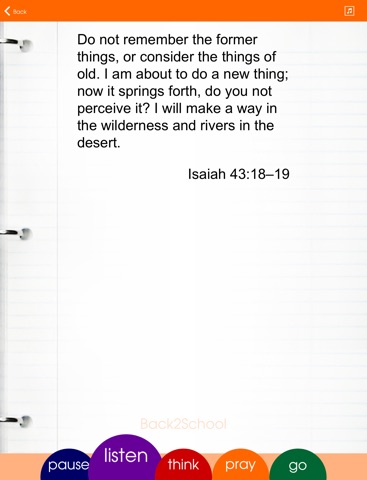 Back
Do not remember the former
things, or consider the things of
old. I am about to do a new thing;
now it springs forth, do you not
perceive it? I will make a way in
the wilderness and rivers in the
desert.
Isaiah 43:18–19
Back2School
pause
listen
think
pray
go